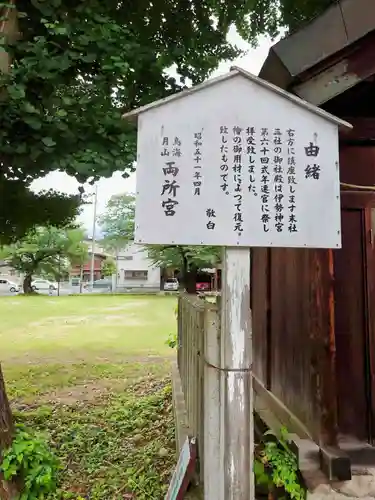 由緒
右方に鎮座致します末社
三社の御社殿は、伊勢神宮
第六十回式年遷宮に祭し
拝受致しました。
檜の御用材によって復元
致したものです。
敬白
昭和五十一年四月
鳥海
月山
両所宮